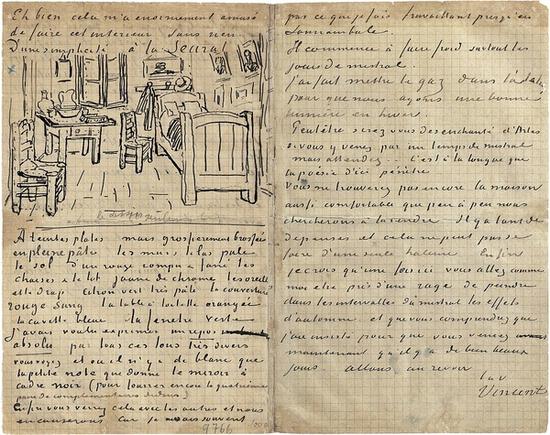 Eh bien cela m'a enormement amusé
de faire cet interieur sans rien
D'une simplicité à la Seurat
A teintes plates mais grossierement brossées
en pleine pâte les murs lilas pale
le sol d'un rouge rompu & fané les
chaises & le lit jaune de chrome les oreillers
et le drap citron vert très pâle la couverture
rouge sang la table à toilette orangée
la cuvette bleue la fenetre verte
j'avais voulu exprimer un repos
absolu par tous ces tons très divers
vous voyez et où il n'y a de blanc que
la petite note que donne le miroir à
cadre noir (pour fourrer encore la quatrième
paire de complementaires dedans)
Enfin vous verrez cela avec les autres et nous
en causerons car je ne sais souvent
9766
pas ce que je fais travaillant presqu'en
somnambule.
Il commence à faire froid surtout les
jours de mistral.
j'ai fait mettre le gaz dans l'atelier
pour que nous ayons une bonne
lumière en hiver.
Peutêtre serez vous desenchanté d'Arles
si vous y venez par un temps de mistral
mais attendez. C'est à la longue que
la poésie d'ici pénètre.
Vous ne trouverez pas encore la maison
aussi comfortable que peu à peu nous
chercherons à la rendre. Il y a tant de
depenses et cela ne peut pas se
faire d'une seule haleine. Enfin
je crois qu'une fois ici vous allez comme
moi etre pris d'une rage de peindre
dans les intervalles du mistral les effets
d'automne et que vous comprendrez que
j'ai insisté pour que vous veniez
maintenant qu'il y a de bien beaux
jours. allons au revoir
t. à v.
Vincent